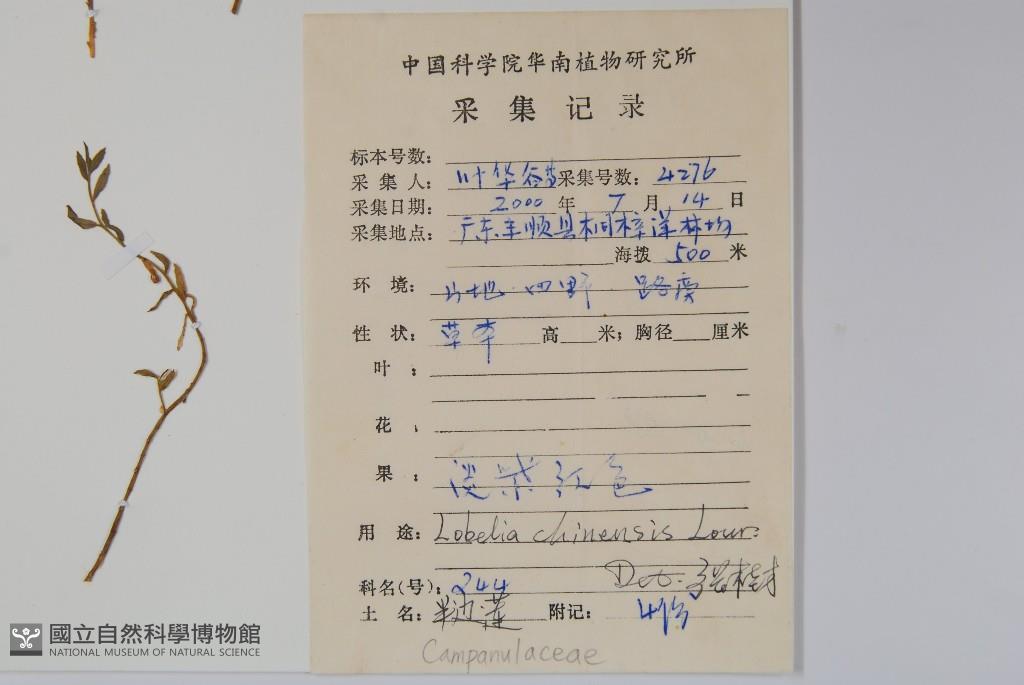 中国科学院华南植物研究所
采集记录
标本号数：
采集人：叶华谷等 采集号数：4276
采集日期：2000年7月14日
采集地点：广东丰顺县桐梓洋林场
海拨500米
环境：山地 田野 路旁
性状：草本 高 米；胸径 厘米
叶：
花：
果：淡紫红色
用途：Lobelia chinensis Lour.
科名(号)：244 Det.
土名：半边莲 附记：4份
Campanulaceae
國立自然科學博物館
NATIONAL MUSEUM OF NATURAL SCIENCE